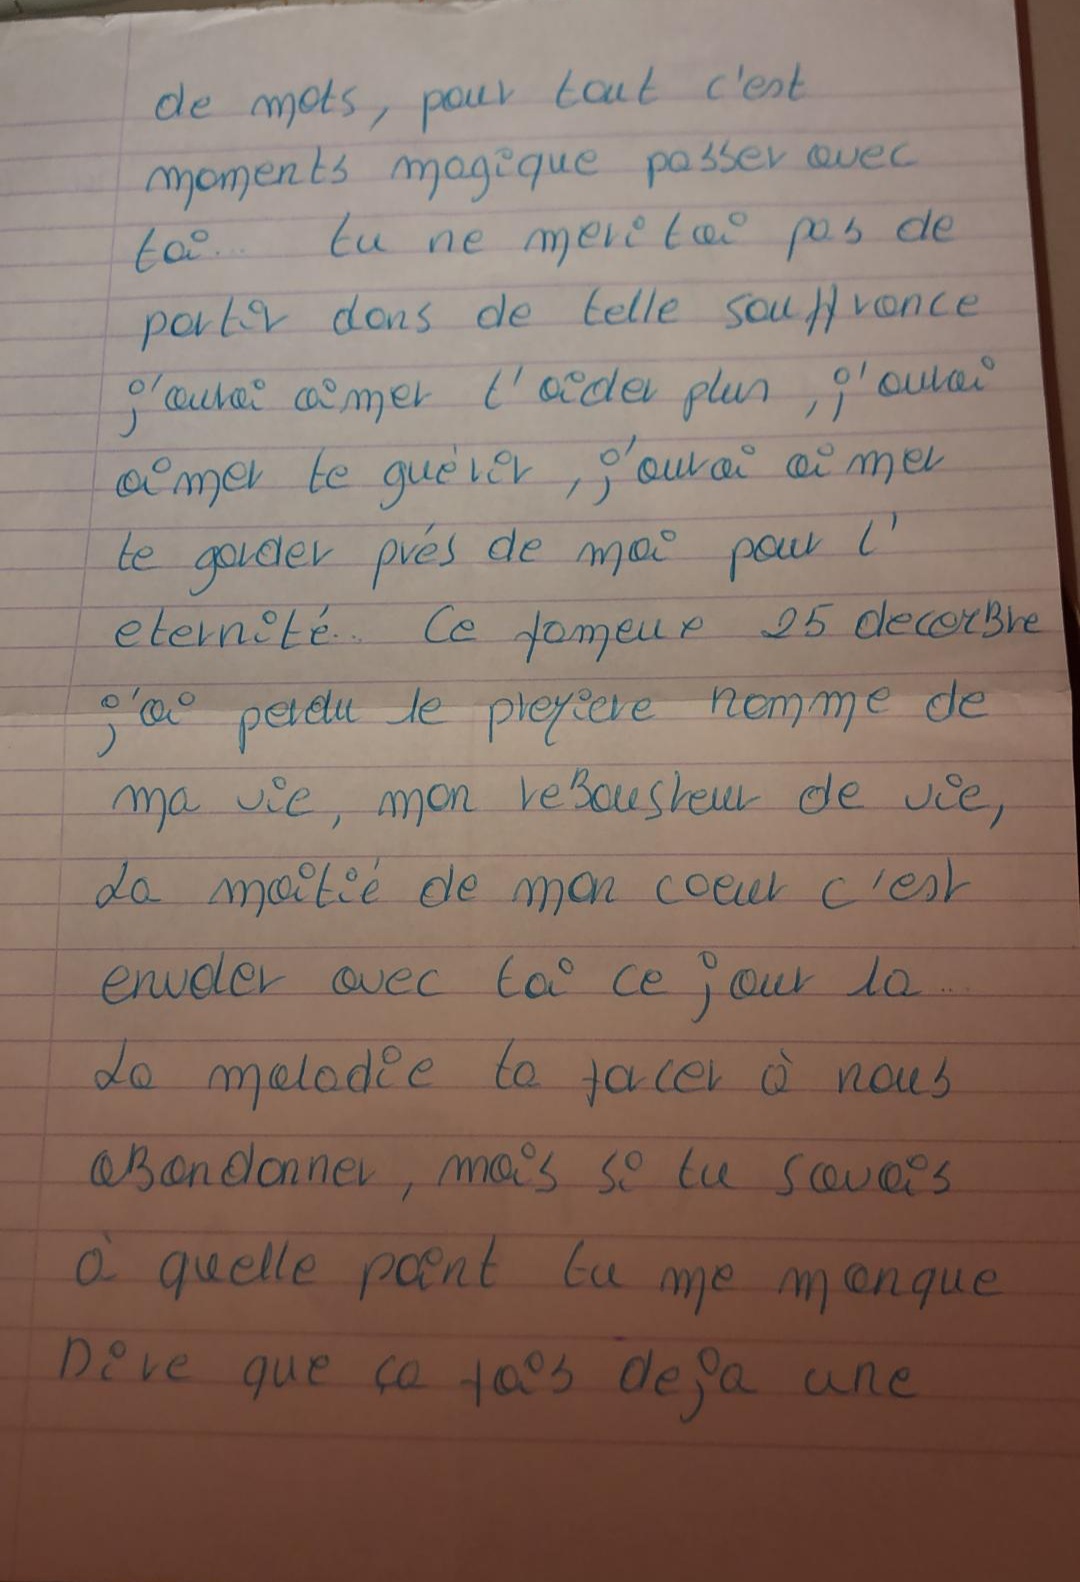 de mots, pour tout c'est
moments magique passer avec
toi... tu ne meritai pas de
partir dans de telle souffrance
j'aurai aimer t'aider plus, j'aurai
aimer te guérir, j'aurai aimer
te garder prés de moi pour l'
eternité.. Ce fameux 25 decembre
j'ai perdu le premiere homme de
ma vie, mon rebousteur de vie,
La moitié de mon coeur c'est
envoler avec toi ce jour la...
La maladie ta forcer à nous
abandonner, mais si tu savais
à quelle point tu me manque
Dire que ça fais deja une